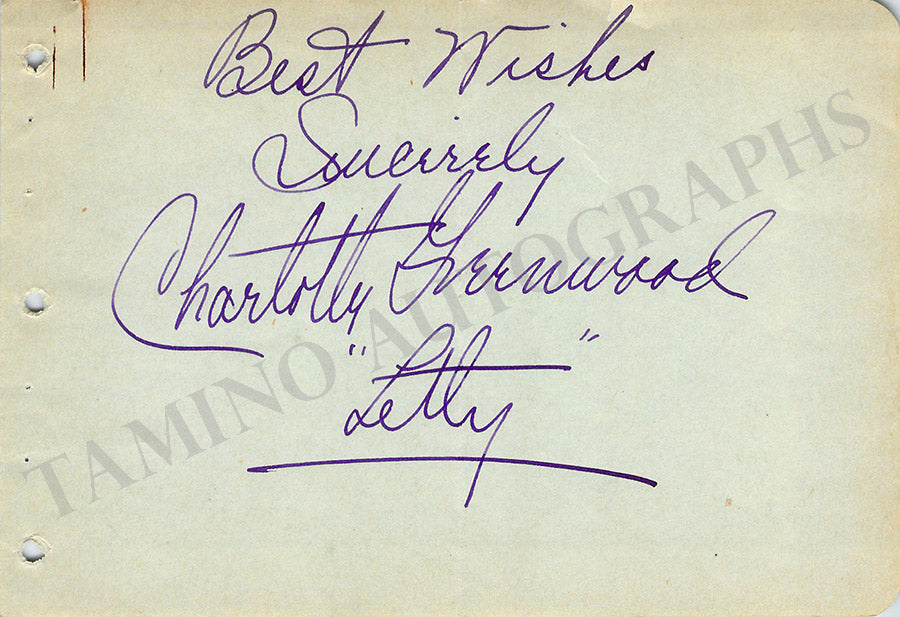 Best Wishes
Sincerely
Charlotte Greenwood
"Letty"
TAMINO AUTOGRAPHS